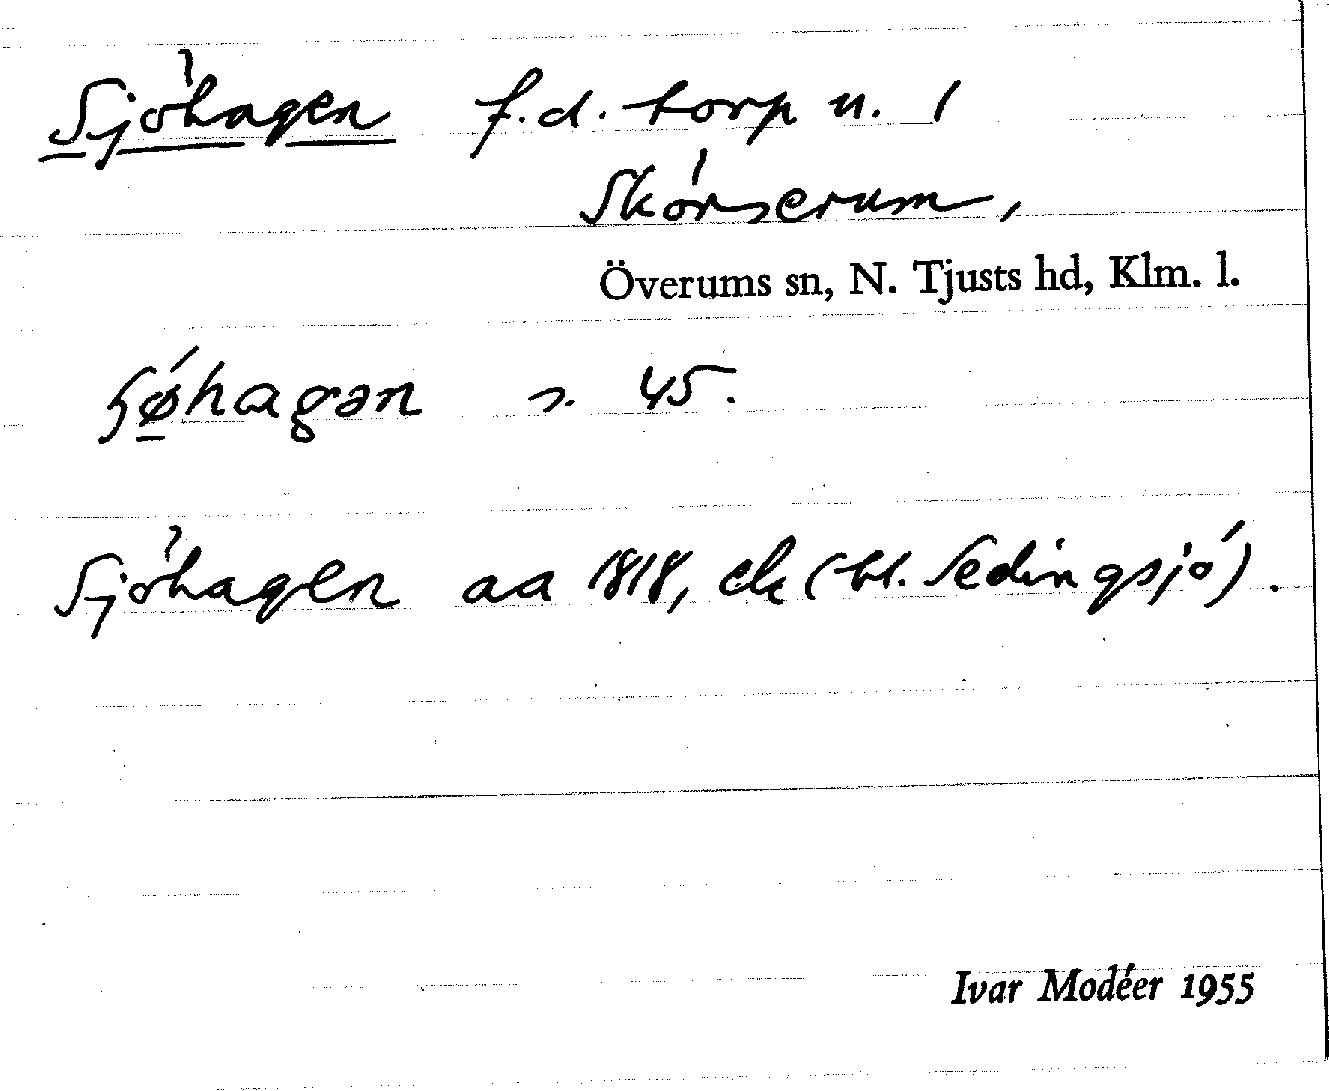 Sjöhagen f.d. torp u. 1
Skörserum,
Överums sn, N. Tjusts hd, Klm. l.
ʂǿ̱hagən s. 45.
Sjöhagen aa 1818, ek (bl. Sedingsjö).
Ivar Modéer 1955